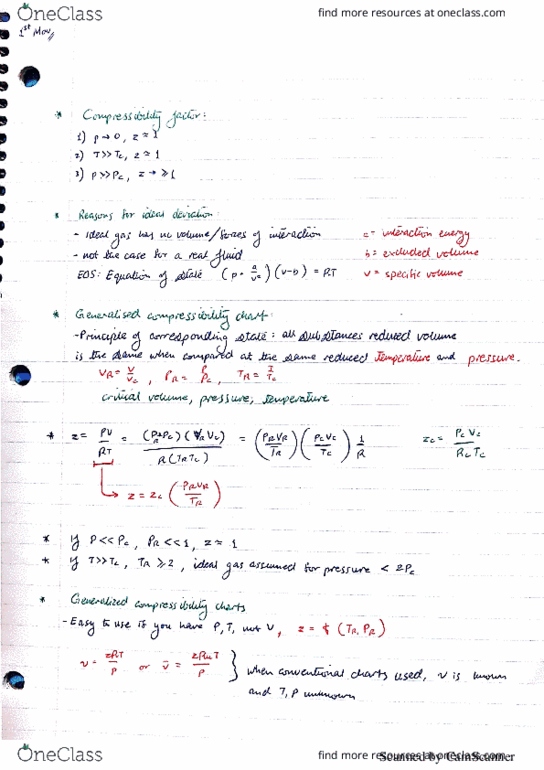 OneClass
find more resources at oneclass.com
1st May
* Compressibility factor:
1) P→0, z≈1
2) T>>Tc, z≈1
3) P>>Pc, z→≥1
* Reasons for ideal deviation:
- ideal gas has no volume/forces of interaction
a = interaction energy
- not the case for a real fluid
b = excluded volume
EOS: Equation of state (P + a/v²)(v-b) = RT
v = specific volume
* Generalised compressibility chart:
- Principle of corresponding state: all substances reduced volume
is the same when compared at the same reduced temperature and pressure.
VR = V/Vc , PR = P/Pc , TR = T/Tc
critical volume, pressure, temperature
* z = PV/RT = (PRPc)(VRVc)/R(TRTc) = (PRVR/TR)(PcVc/Tc) 1/R zc = PcVc/RcTc
z = zc (PRVR/TR)
* If P<<Pc, PR<<1, z≈1
* if T>>Tc, TR≥2, ideal gas assumed for pressure < 2Pc
* Generalized compressibility charts
- Easy to use if you have P,T, not V, z = f (TR, PR)
v = zRT/P or v̄ = zRuT/P } when conventional charts used, v is known
and T, P unknown
OneClass
find more resources at oneclass.com
Scanned by CamScanner